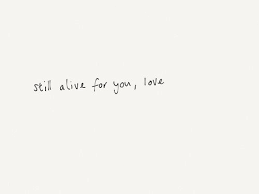 still alive for you, love